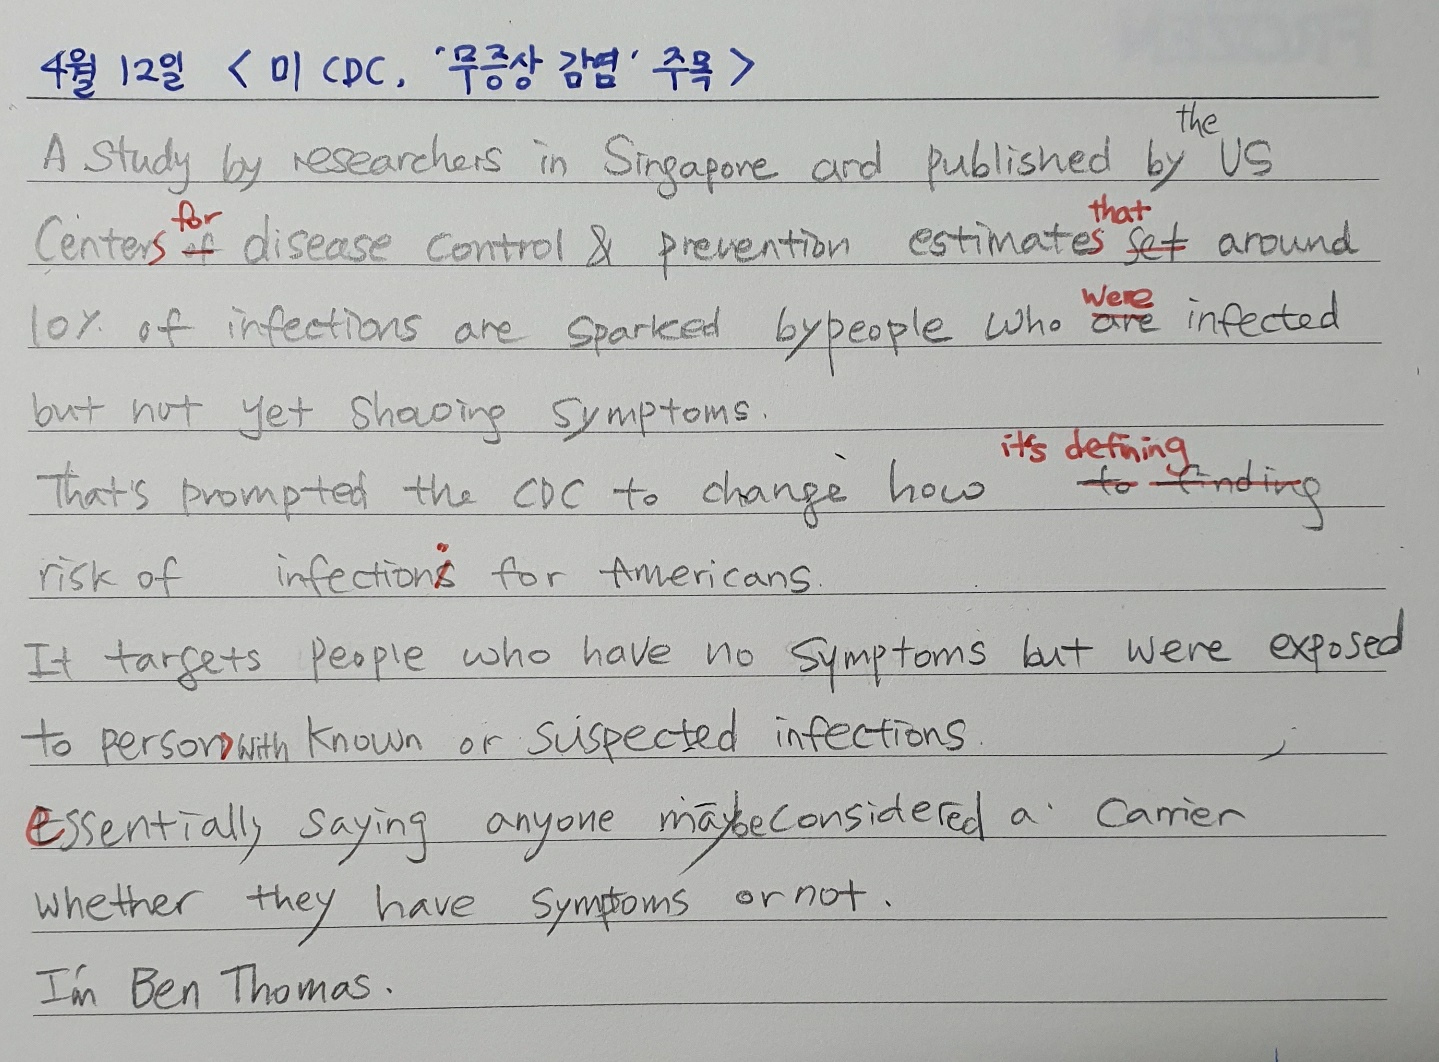 4월 12일 < 미 CDC, '무증상 감염' 주목 >
A study by researchers in Singapore and published by the US
Centers of for disease control & prevention estimates set that around
10% of infections are sparked by people who are were infected
but not yet showing symptoms.
That's prompted the CDC to change how to finding it's defining
risk of infections for Americans.
It targets people who have no symptoms but were exposed
to person with known or suspected infections.
essentially saying anyone maybe considered a carrier
whether they have symptoms or not.
I'm Ben Thomas.